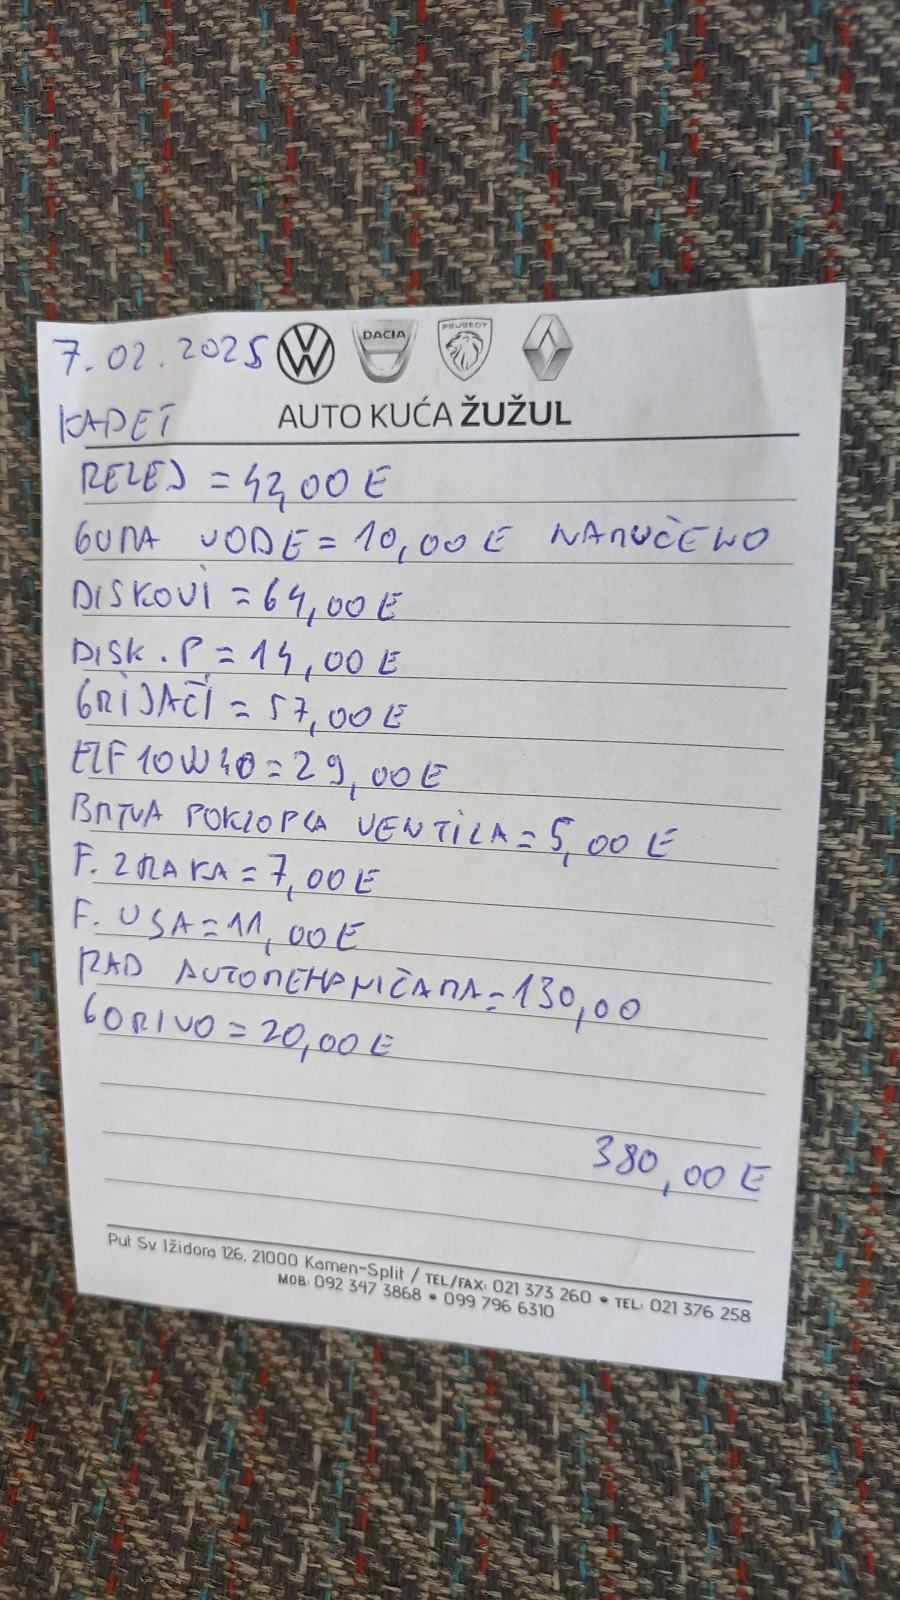 7.02.2025
DACIA PEUGEOT
KADET
AUTO KUĆA ŽUŽUL
RELEJ = 42,00 E
GUMA VODE = 10,00 E NARUČENO
DISKOVI = 64,00 E
DISK. P = 14,00 E
GRIJAČI = 57,00 E
ELF 10W40 = 29,00 E
BRTVA POKLOPCA VENTILA = 5,00 E
F. ZRAKA = 7,00 E
F. USA = 11,00 E
RAD AUTOMEHANIČARA = 130,00
GORIVO = 20,00 E
380,00 E
Put Sv Ižidora 126, 21000 Kamen-Split / TEL/FAX: 021 373 260 • TEL: 021 376 258
MOB: 092 347 3868 • 099 796 6310